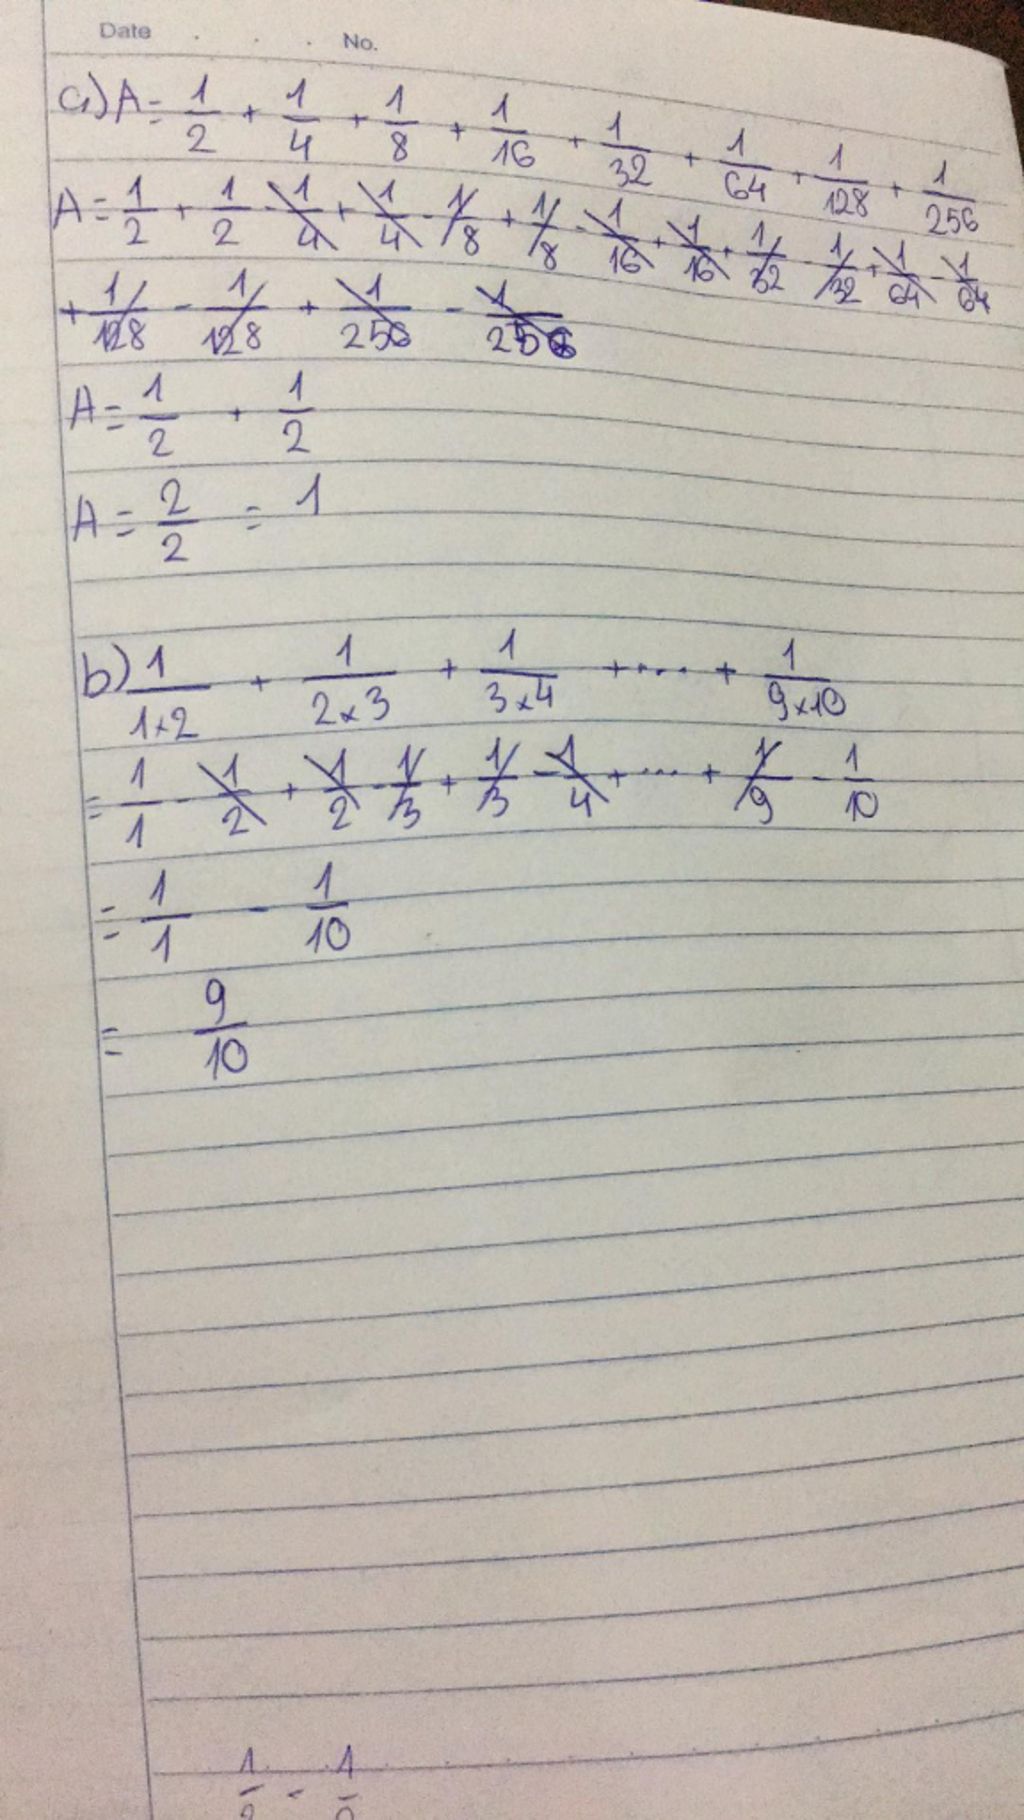 Date . . . No.
a) A = 1/2 + 1/4 + 1/8 + 1/16 + 1/32 + 1/64 + 1/128 + 1/256
A = 1/2 + 1/2 - 1/4 + 1/4 - 1/8 + 1/8 - 1/16 + 1/16 + 1/32 - 1/32 + 1/64 - 1/64
+ 1/128 - 1/128 + 1/256 - 1/256
A = 1/2 + 1/2
A = 2/2 = 1
b) 1/1×2 + 1/2×3 + 1/3×4 + .... + 1/9×10
= 1/1 - 1/2 + 1/2 - 1/3 + 1/3 - 1/4 + ... + 1/9 - 1/10
= 1/1 - 1/10
= 9/10